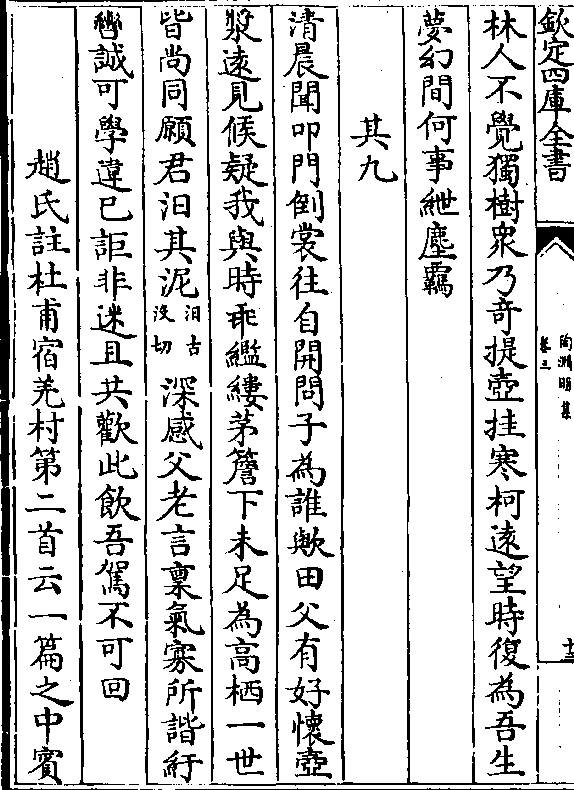 欽定四庫全書
陶淵明集
卷三
十三
林人不覺獨樹衆乃奇提壺挂寒柯遠望時復為吾生
夢幻間何事紲塵羈
其九
清晨聞叩門倒裳往自開問子為誰歟田父有好懷壺
漿遠見候疑我與時乖繿縷茅簷下未足為高栖一世
皆尚同願君汩其泥汩古沒切深感父老言禀氣寡所諧紆
轡誠可學違已詎非迷且共歡此飲吾駕不可回
趙氏註杜甫宿羌村第二首云一篇之中賓